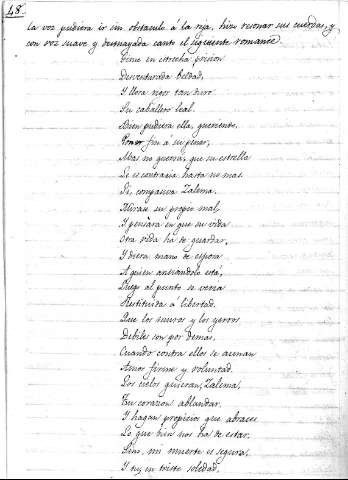 48.
la voz pudiera ir sin obstaculo á la reja, hizo resonar sus cuerdas, y
con voz suave y desmayada cantó el siguiente romance.
Gime en estrecha prision
Desventurada beldad,
Y llora rigor tan duro
Su caballero leal.
Bien pudiera ella, queriendo,
Poner fin á su penar,
Mas no querrá, que su estrella
Le es contraria hasta no mas.
Sé, compasiva Zalema,
Mirau su propio mal,
Y pensára en que su vida
Otra vida ha de guardar,
Y diera mano de esposa
A quien ansiandolo está,
Luego al punto se veria
Restituida á libertad.
Que los muros y los yerros
Debiles son por demas,
Cuando contra ellos se aunan
Amor firme y voluntad.
Los cielos quieran, Zalema,
Tu corazon ablandar,
Y hagan propicios que abraces
Lo que bien nos ha de estar.
Sino, mi muerte es segura,
Y tu, en triste soledad,